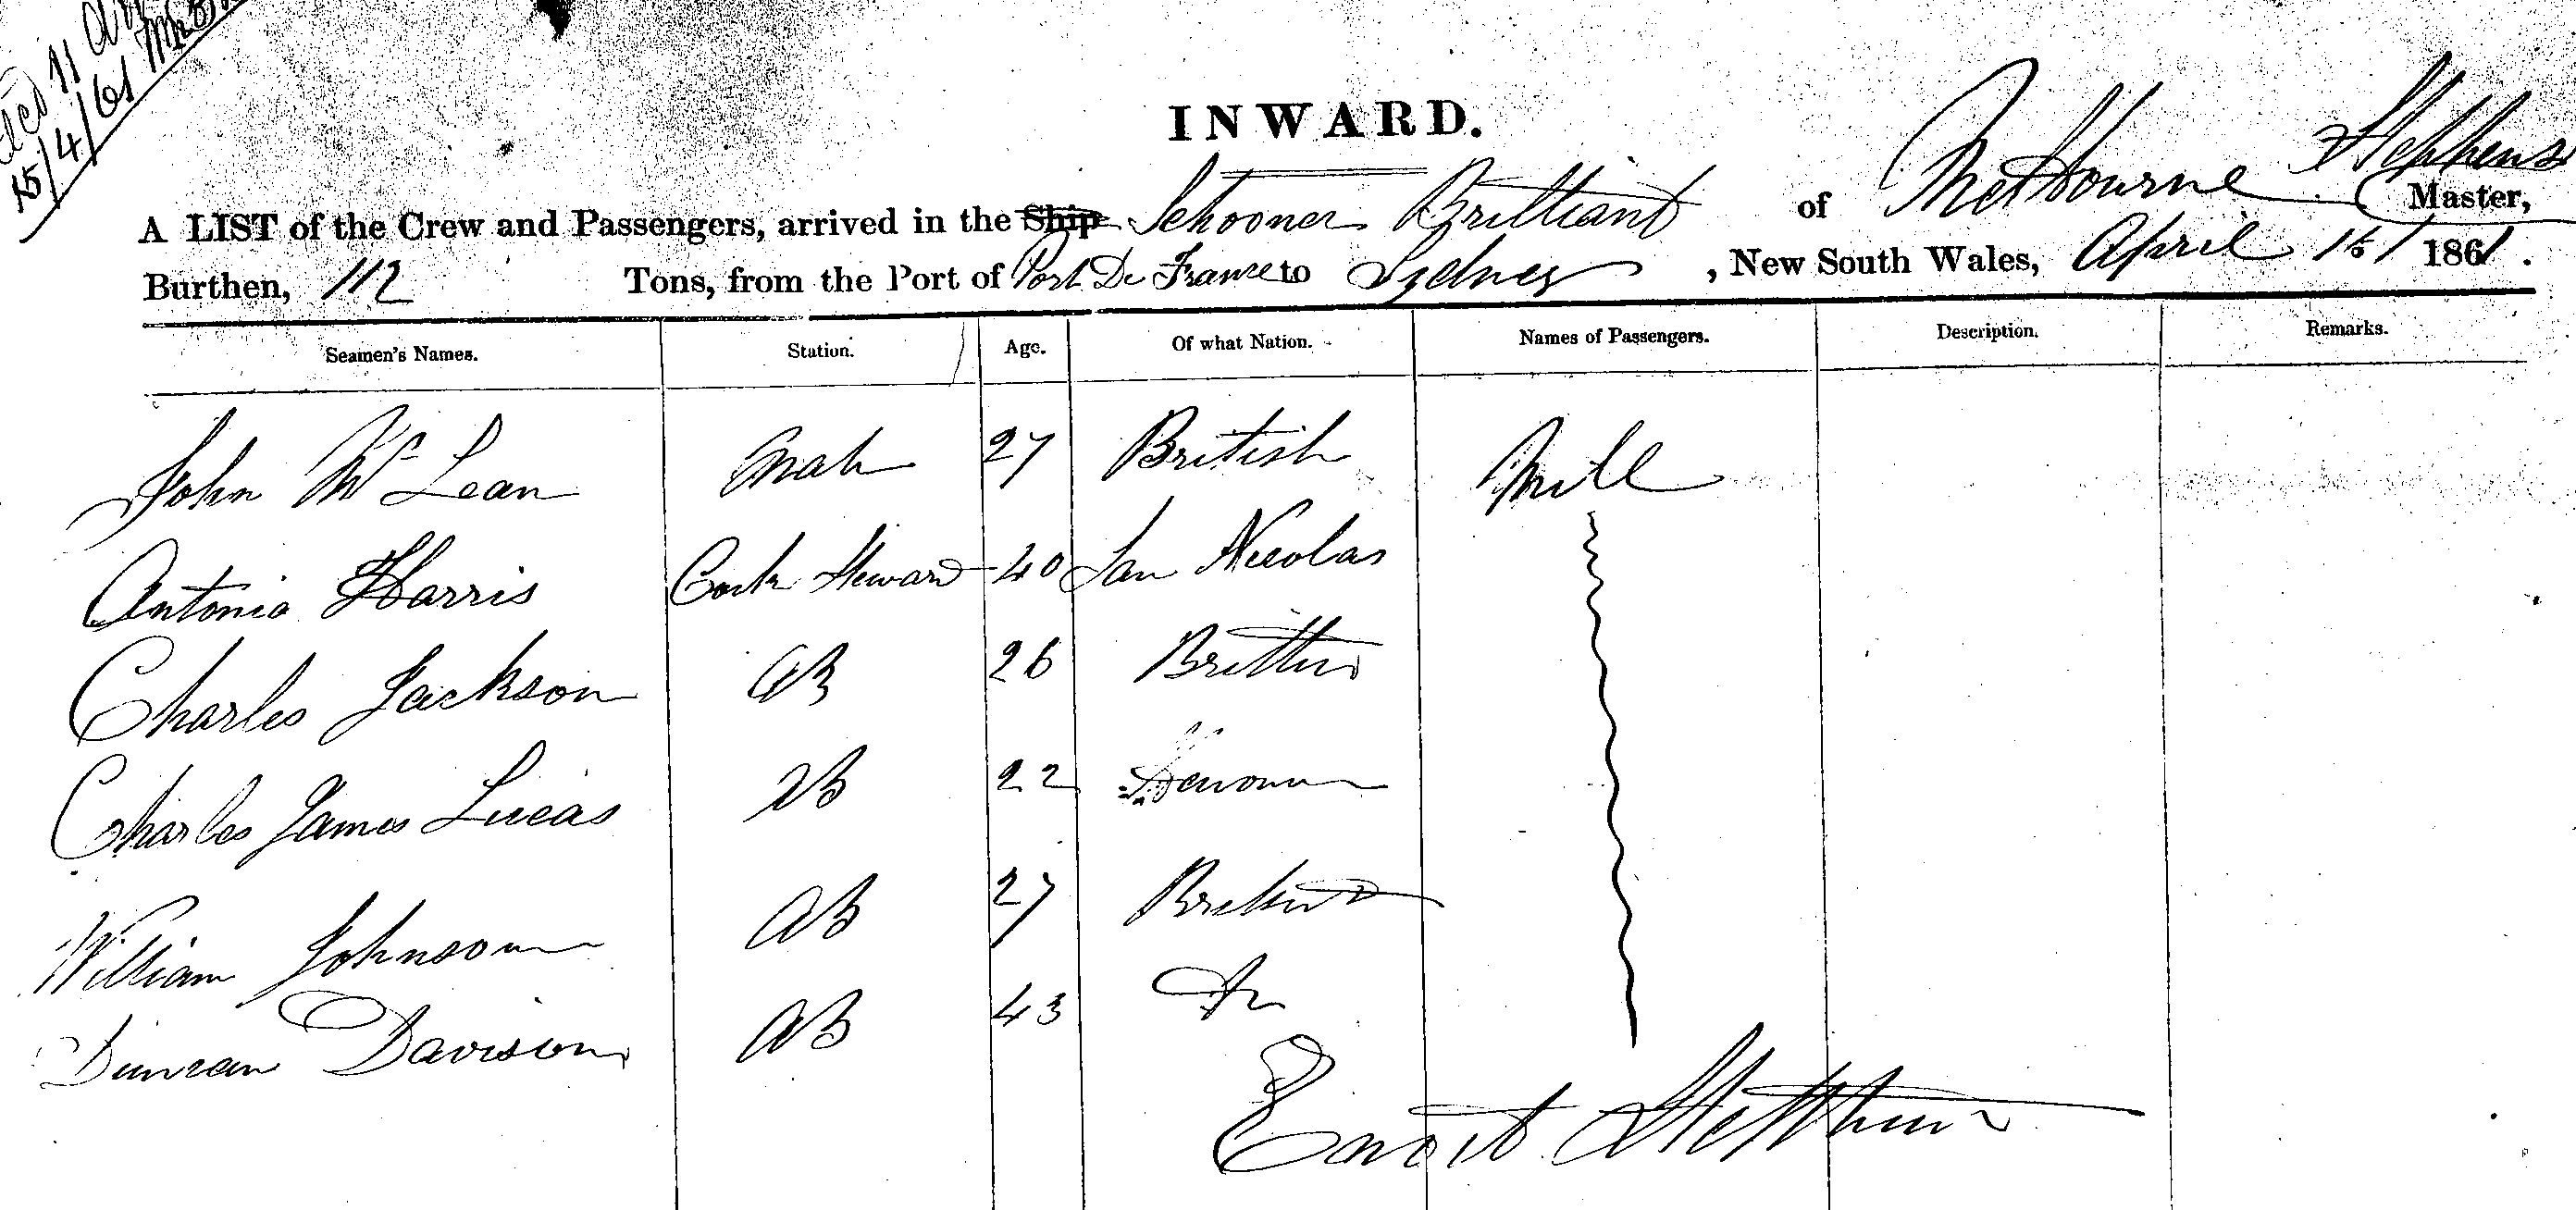 15/4/61
INWARD.
A LIST of the Crew and Passengers, arrived in the Ship Schooner Brilliant of Melbourne Stephens Master,
Burthen, 112 Tons, from the Port of Port De France to Sydney, New South Wales, April 15 1861.
Seamen's Names. Station. Age. Of what Nation. Names of Passengers. Description. Remarks.
John Mc Lean Mate 27 British Nill
Antonio Harris Cook Steward 40 San Nicolas
Charles Jackson AB 26
Charles James Lucas AB 22
William Johnson AB 27
Duncan Davison AB 43